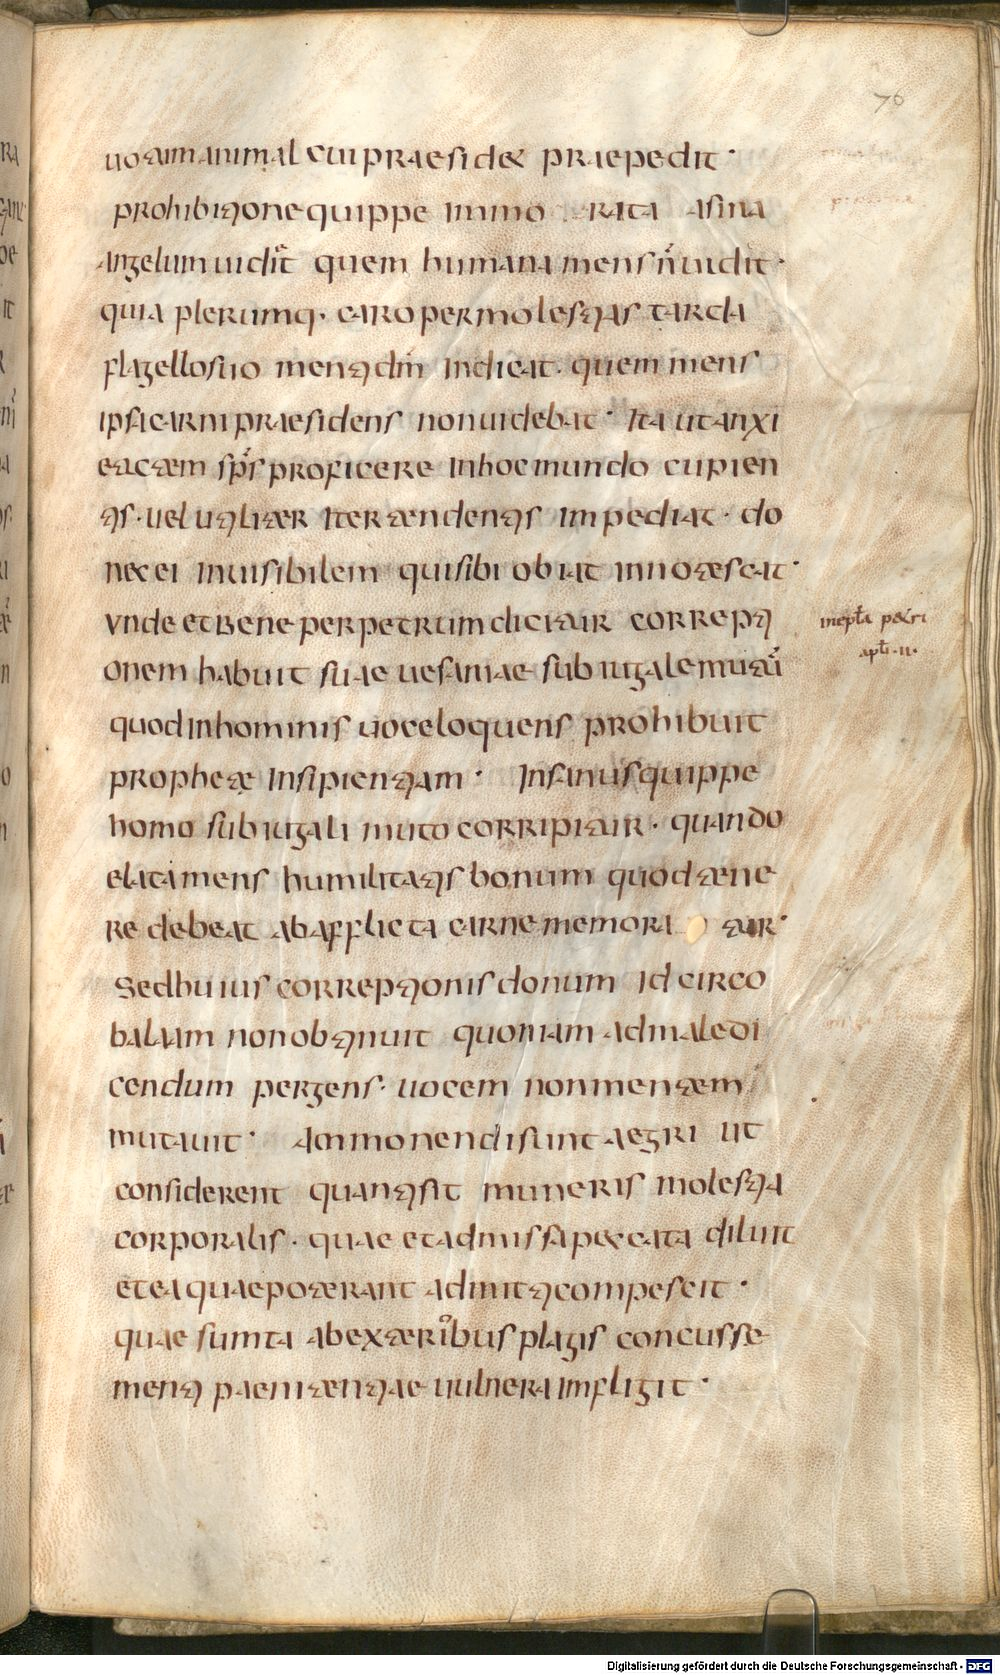 uotum animal cui praesidet praepedit·
prohibitione quippe immo rata asina
angelum uidit quem humana mens n̄ uidit·
quia plerumq· caro per molestias tarda
flagello suo menti dm̄ indicat· quem mens
ipsa carni praesidens non uidebat· Ita ut anxi
etatem sps̄ proficere in hoc mundo cupien
tis· uel utiliter iter tendentis impediat· do
nec ei inuisibilem qui sibi obuiat innotescat·
Vnde et bene per petrum dicitur correpti
onem habuit suae uesaniae subiugale mutū
quod in hominis uoce loquens prohibuit
prophete insipientiam· Insanus quippe
homo subiugali muto corripitur· quando
elata mens humilitatis bonum quod tene
re debeat ab afflicta carne memoratur·
Sed huius correptionis donum idcirco
balaam non obtinuit quoniam ad maledi
cendum pergens· uocem non mentem
mutauit· Ammonendi sunt aegri ut
considerent quanti sit muneris molestia
corporalis· quae et admissa peccata diluit
et ea quae poterant admitti compescit·
quae sumta ab exterioribus plagis concussae
menti paenitentiae uulnera infligit·
in epła petri
apłi·II·
76
Digitalisierung gefördert durch die Deutsche Forschungsgemeinschaft - DFG